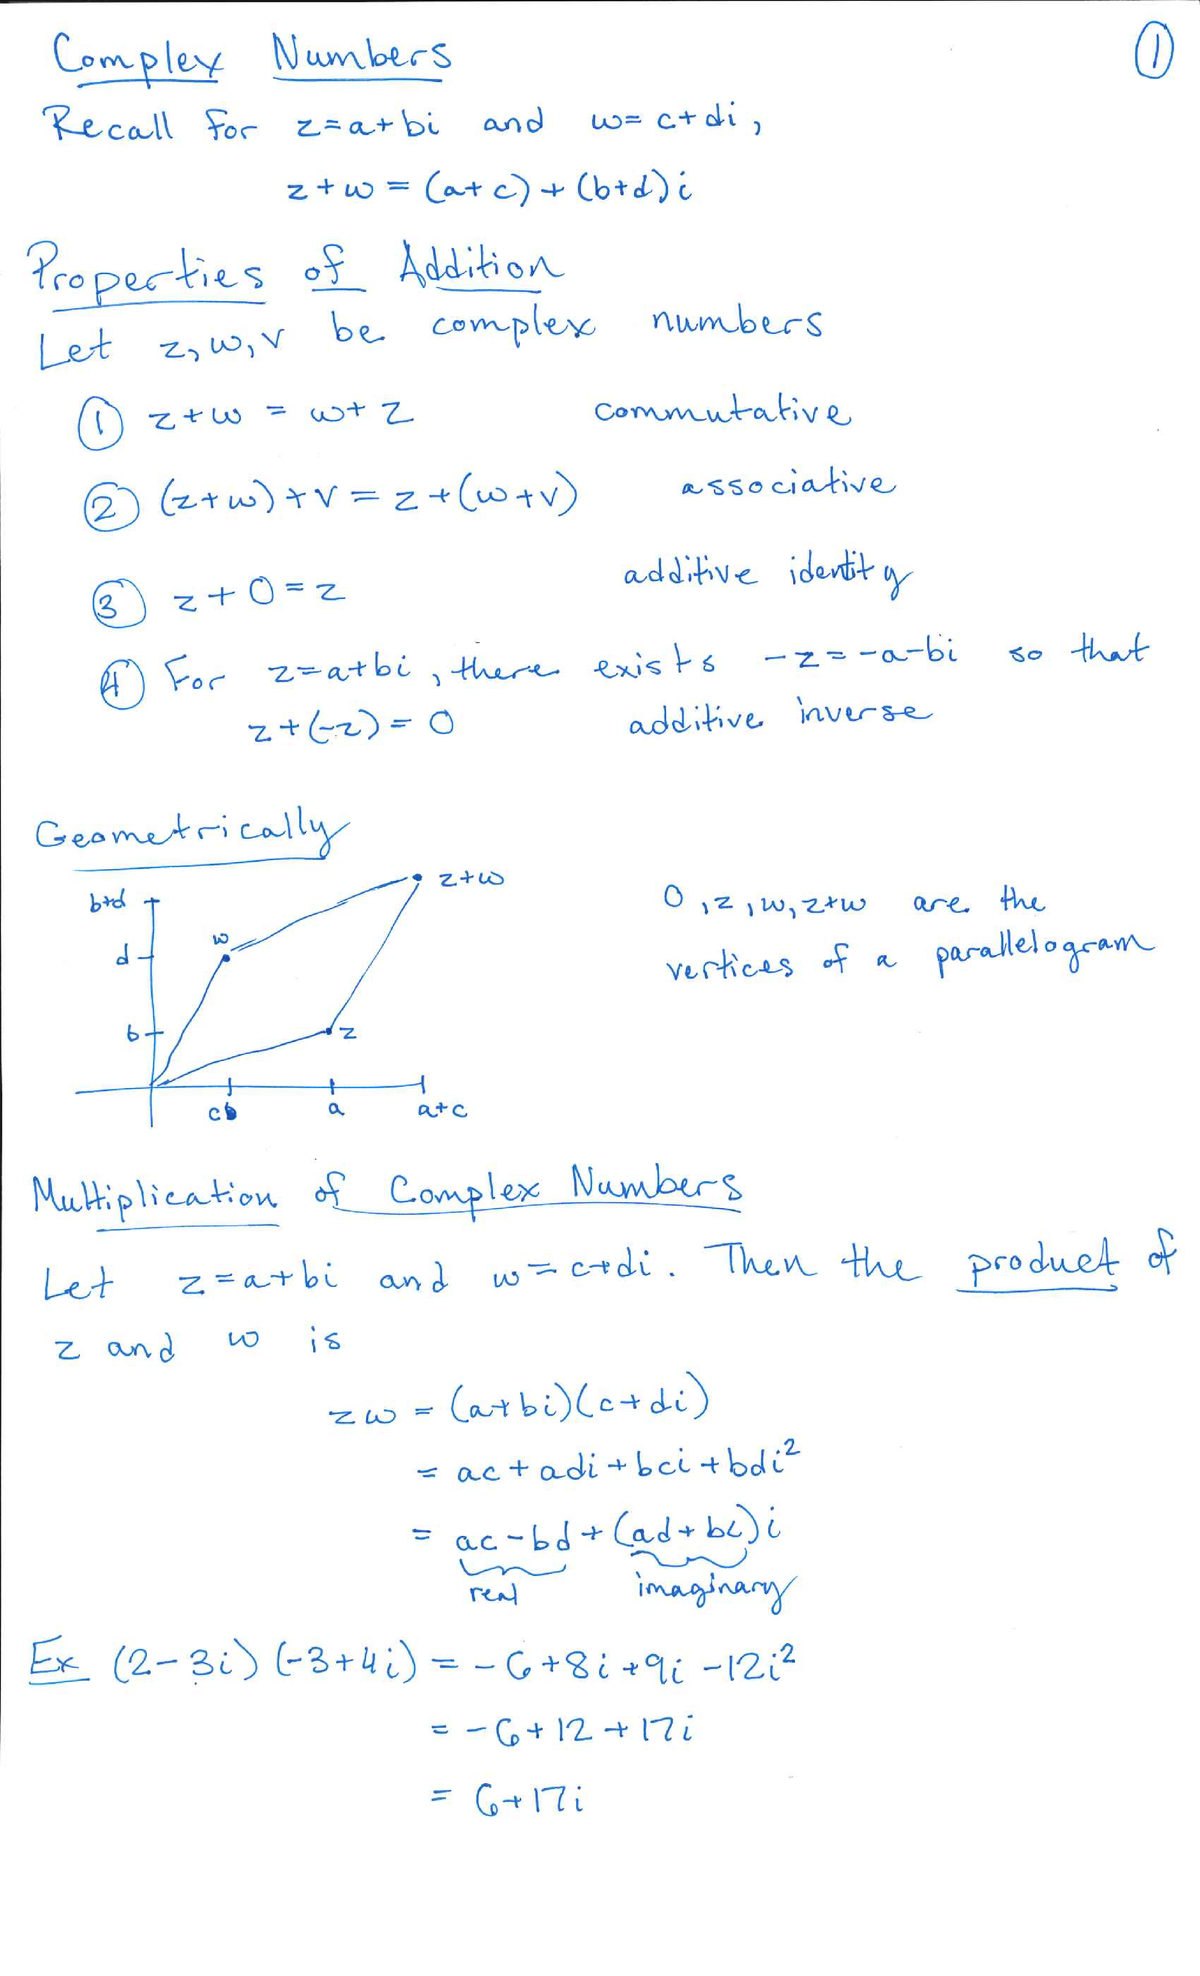 Complex Numbers ①
Recall for z=a+bi and w=c+di,
z+w=(a+c)+(b+d)i
Properties of Addition
Let z,w,v be complex numbers
① z+w = w+z commutative
② (z+w)+v=z+(w+v) associative
③ z+0=z additive identity
④ For z=a+bi, there exists -z=-a-bi so that
z+(-z)=0 additive inverse
Geometrically
z+w
b+d
0,z,w,z+w are the
w
d
vertices of a parallelogram
b
z
c
a
a+c
Multiplication of Complex Numbers
Let z=a+bi and w=c+di. Then the product of
z and w is
zw = (a+bi)(c+di)
= ac+adi+bci+bdi²
= ac-bd+(ad+bc)i
real imaginary
Ex (2-3i)(-3+4i) = -6+8i+9i-12i²
= -6+12+17i
= 6+17i